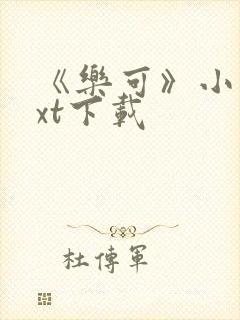 《樂可》小
xt下載
杜傳軍